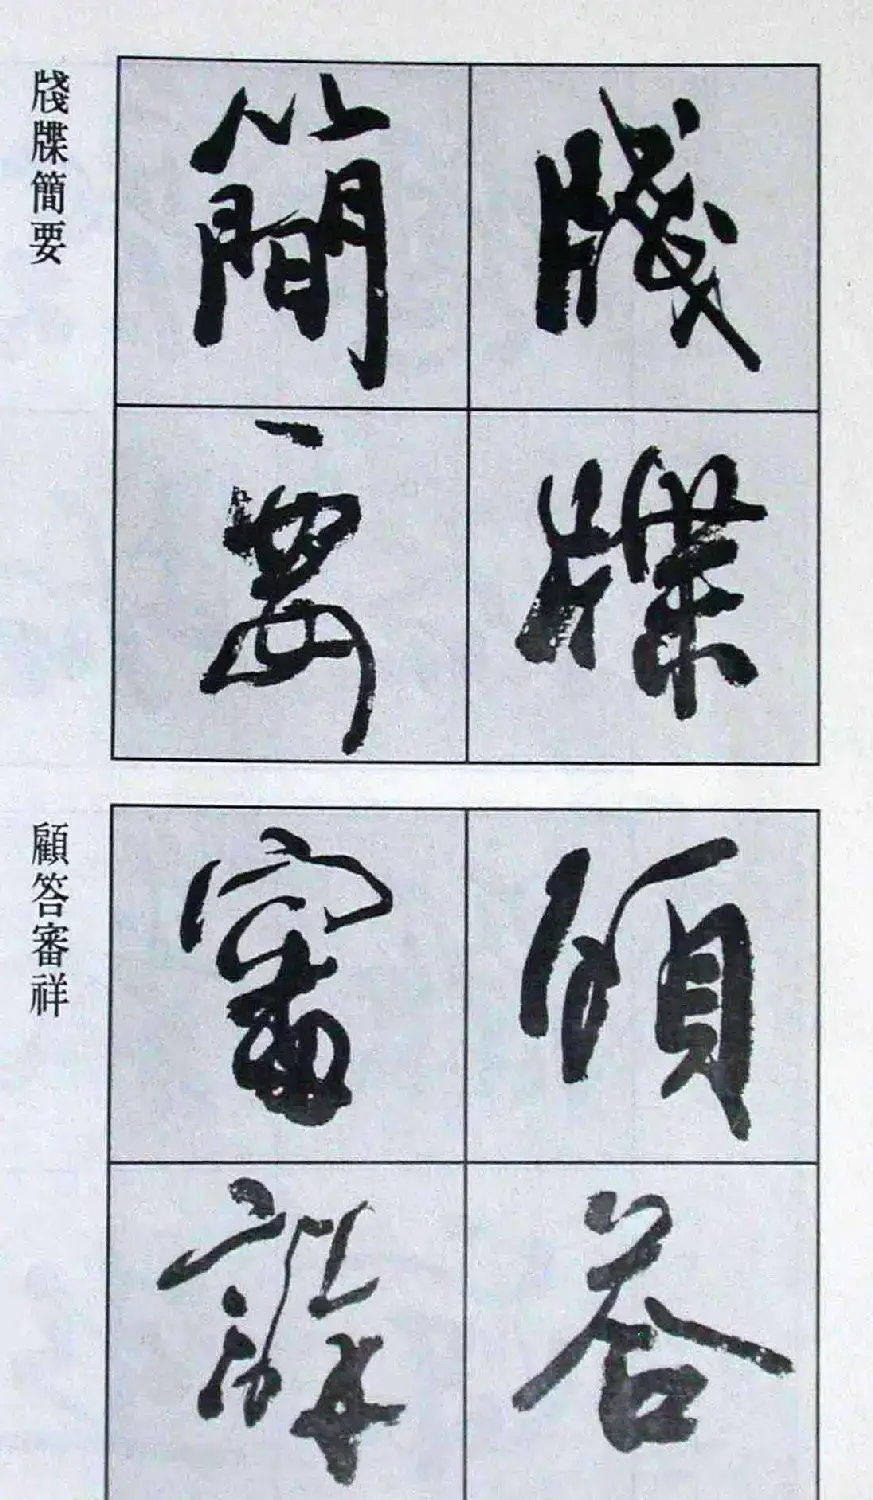 牋牒
簡要
牋牒簡要
顧答
審詳
顧答審祥